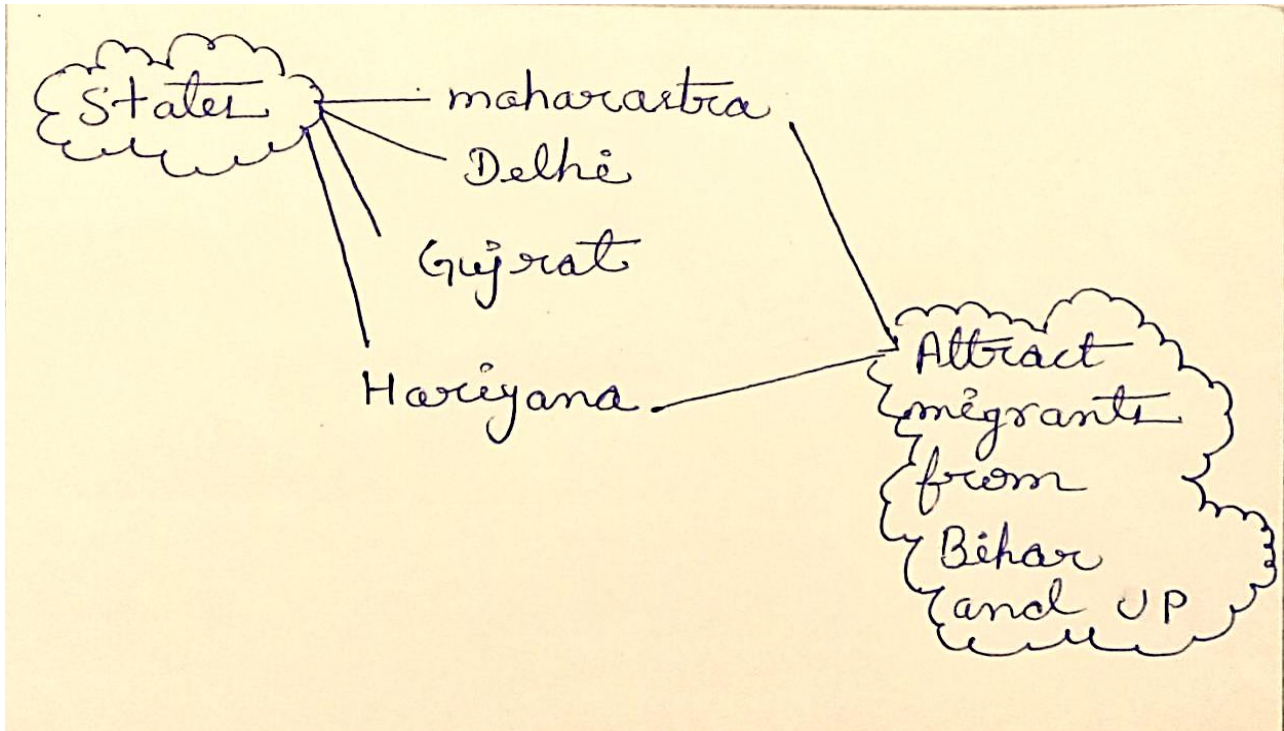 States
maharastra
Delhi
Gujrat
Hariyana
Attract
migrants
from
Bihar
and UP